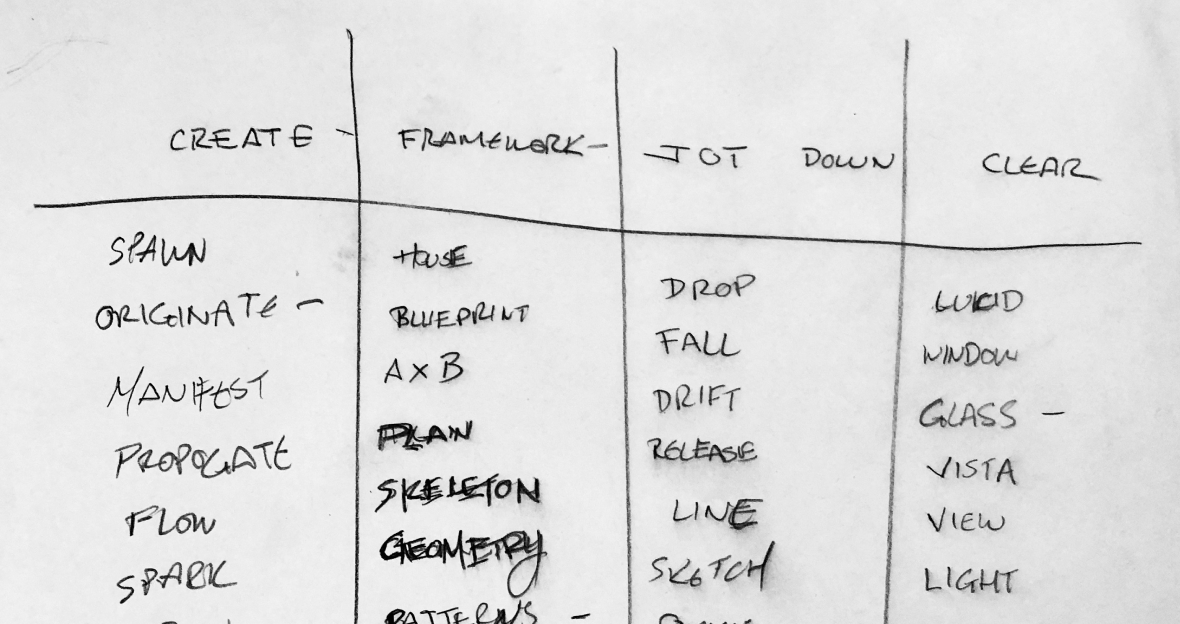 CREATE - FRAMEWORK - JOT DOWN CLEAR
SPAWN HOUSE DROP LUCID
ORIGINATE - BLUEPRINT FALL WINDOW
MANIFEST A x B DRIFT GLASS -
PROPOGATE PLAN RELEASE VISTA
FLOW SKELETON LINE VIEW
SPARK GEOMETRY SKETCH LIGHT
PATTERNS -